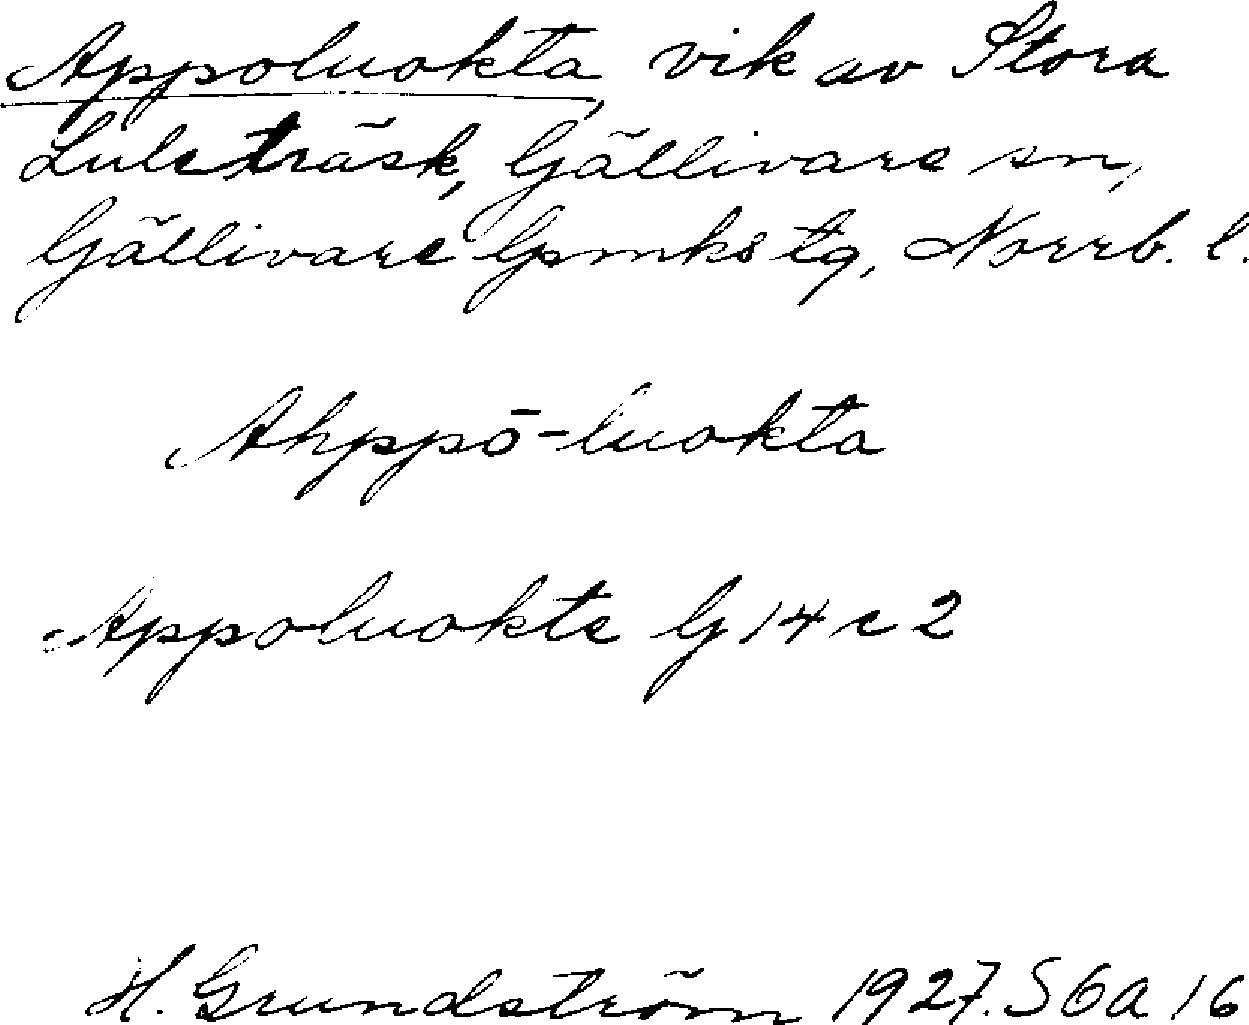 Appoluokta, vik av Stora
Luleträsk, Gällivare sn,
Gällivare lpmks tg, Norrb. l.
Ahppō-luokta
Appoluokte G 14 c 2
H. Grundström 1927. SGA 16